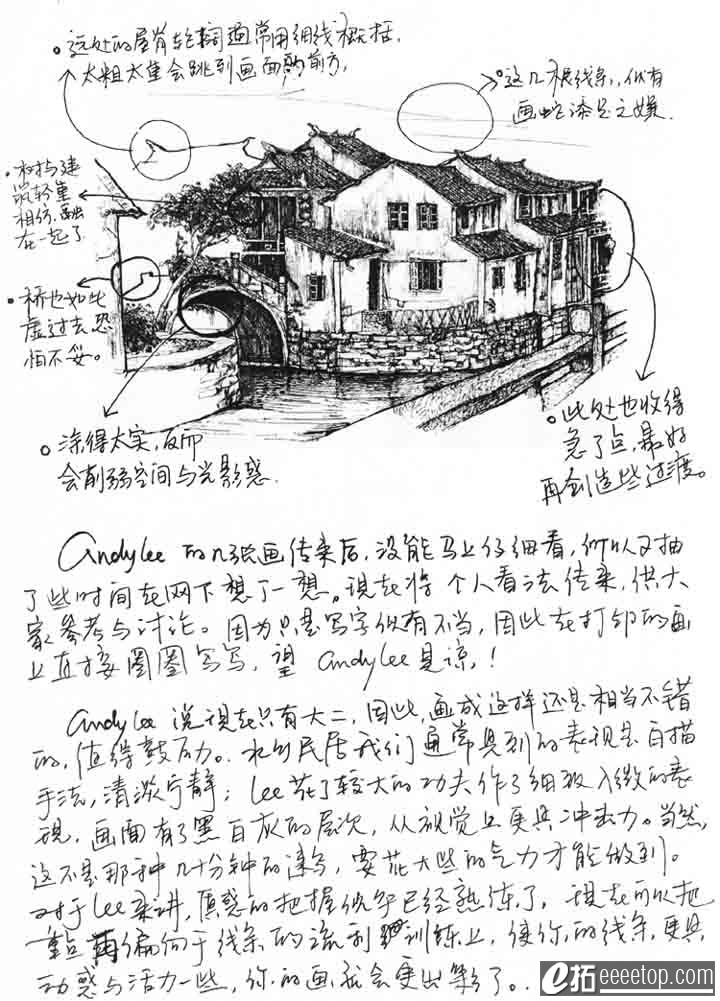 远处的屋脊轮阔通常用细线概括,
太粗太重会跳到画面的前方,
这几根线条,似有
画蛇添足之嫌.
树与建
筑轻重
相仿,融
在一起了
桥也如此
虚过去恐
怕不妥。
涂得太实,反而
会削弱空间与光影感.
此处也收得
急了点,最好
再创造些过渡。
andylee 的几张画传来后,没能马上仔细看,所以又抽
了些时间在网下想了一想。现在将个人看法传来,供大
家参考与讨论。因为只是写字似有不当,因此在打印的画
上直接圈圈写写,望 andylee 见谅,!
andylee 说现在只有大二,因此,画成这样还是相当不错
的,值得鼓励。水乡民居我们通常见到的表现是白描
手法,清淡宁静;lee花了较大的功夫作了细致入微的表
现,画面有了黑白灰的层次,从视觉上更具冲击力。当然,
这不是那种几十分钟的速写,要花大些的气力才能做到。
对于lee来讲,质感的把握似乎已经熟练了,现在可以把
重点偏向于线条的流利训练上,使你的线条,更具
动感与活力一些,你的画就会更出彩了。
e拓 eeeetop.com